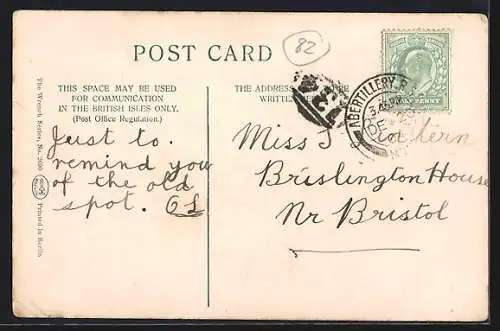 POST CARD
82
THIS SPACE MAY BE USED
FOR COMMUNICATION
IN THE BRITISH ISLES ONLY.
(Post Office Regulation.)
THE ADDRESS
WRITTE
ABERTILLERY
HALFPENNY
The Wrench Series, No.
Printed in Berlin
Just to
remind you
of the old
spot.
Miss
Brislington House
Nr Bristol